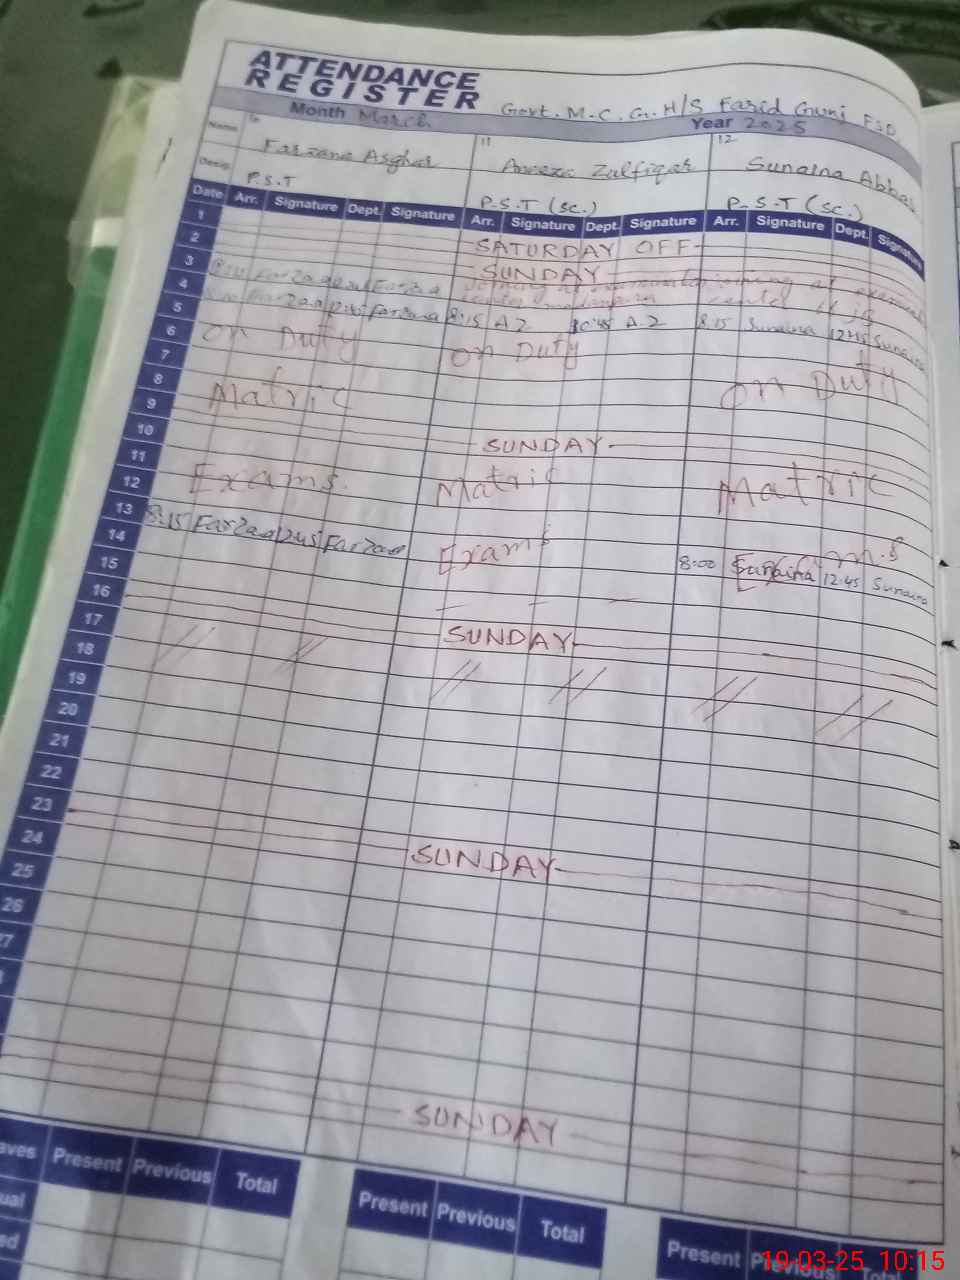 ATTENDANCE
REGISTER
Govt. M.C. G. H/S Farid Gunj FSD
Month March Year 2025
Name 10 Farzana Asghar 11 Aneeza Zulfiqar 12 Sunaina Abbas
Desig. P.S.T P.S.T (SC.) P.S.T (SC.)
Date Arr. Signature Dept. Signature Arr. Signature Dept. Signature Arr. Signature Dept. Signature
1 SATURDAY OFF
2 SUNDAY
3 Farzana Farzana
4 Farzana 12:45 Farzana 8:15 A Z 10:45 A.Z 8:15 Sunaina 12:45 Sunaina
5 on Duty on Duty
6
7 Matric on Duty
8
9 SUNDAY
10
11 Exams. Matric Matric
12
13 8:15 Farzana 12:45 Farzana Exams Exams
14 8:00 Sunaina 12:45 Sunaina
15
16 SUNDAY
17
18
19
20
21
22
23 SUNDAY
24
25
26
27
SUNDAY
Present Previous Total Present Previous Total Present Previous Total
19-03-25 10:15